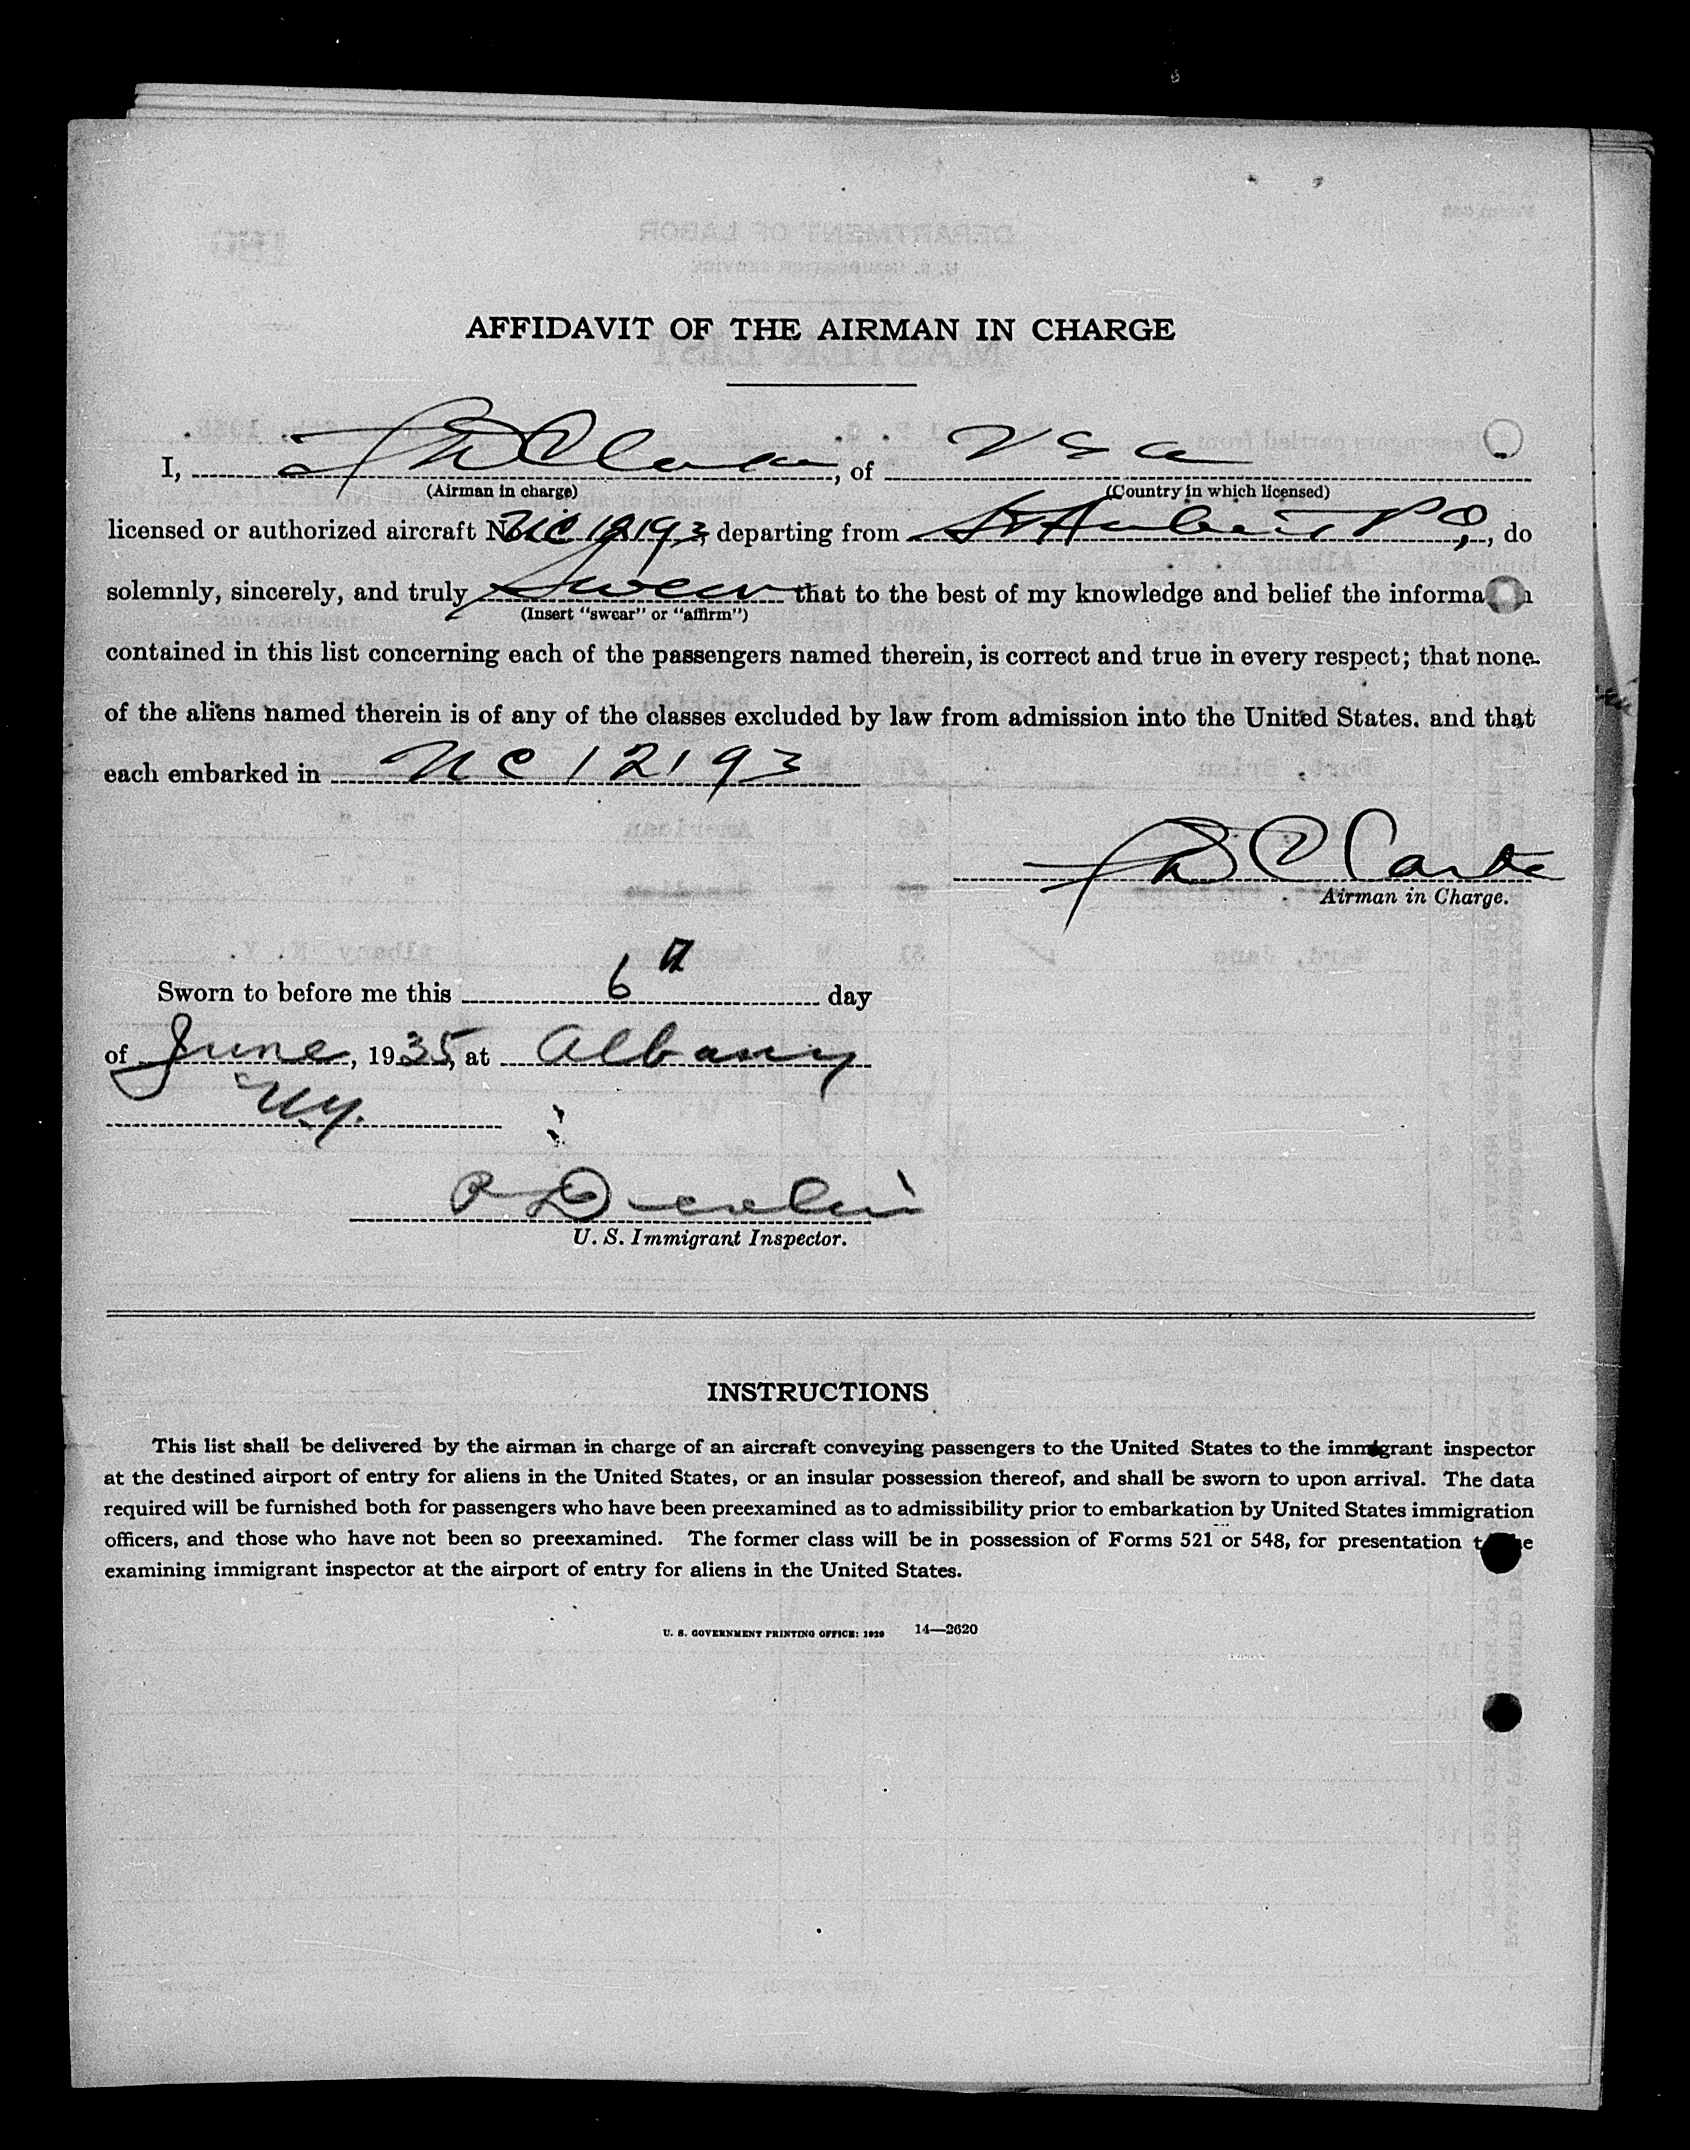 AFFIDAVIT OF THE AIRMAN IN CHARGE
I, , of USA
(Airman in charge) (Country in which licensed)
licensed or authorized aircraft No. NC 12193, departing from St Hubert P Q, do
solemnly, sincerely, and truly Swear that to the best of my knowledge and belief the informa n
(Insert "swear" or "affirm")
contained in this list concerning each of the passengers named therein, is correct and true in every respect; that none
of the aliens named therein is of any of the classes excluded by law from admission into the United States, and that
each embarked in NC 12193
Airman in Charge.
Sworn to before me this 6th day
of June, 1935, at Albany
N.Y.
U. S. Immigrant Inspector.
INSTRUCTIONS
This list shall be delivered by the airman in charge of an aircraft conveying passengers to the United States to the immigrant inspector
at the destined airport of entry for aliens in the United States, or an insular possession thereof, and shall be sworn to upon arrival. The data
required will be furnished both for passengers who have been preexamined as to admissibility prior to embarkation by United States immigration
officers, and those who have not been so preexamined. The former class will be in possession of Forms 521 or 548, for presentation t e
examining immigrant inspector at the airport of entry for aliens in the United States.
U. S. GOVERNMENT PRINTING OFFICE: 1929 14—2620